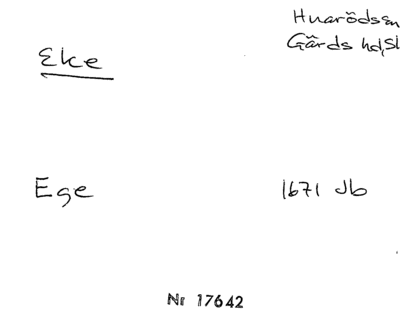 Huarödssn
Eke
Gärds hd, Sk
Ege
1671 Jb
Nr 17642